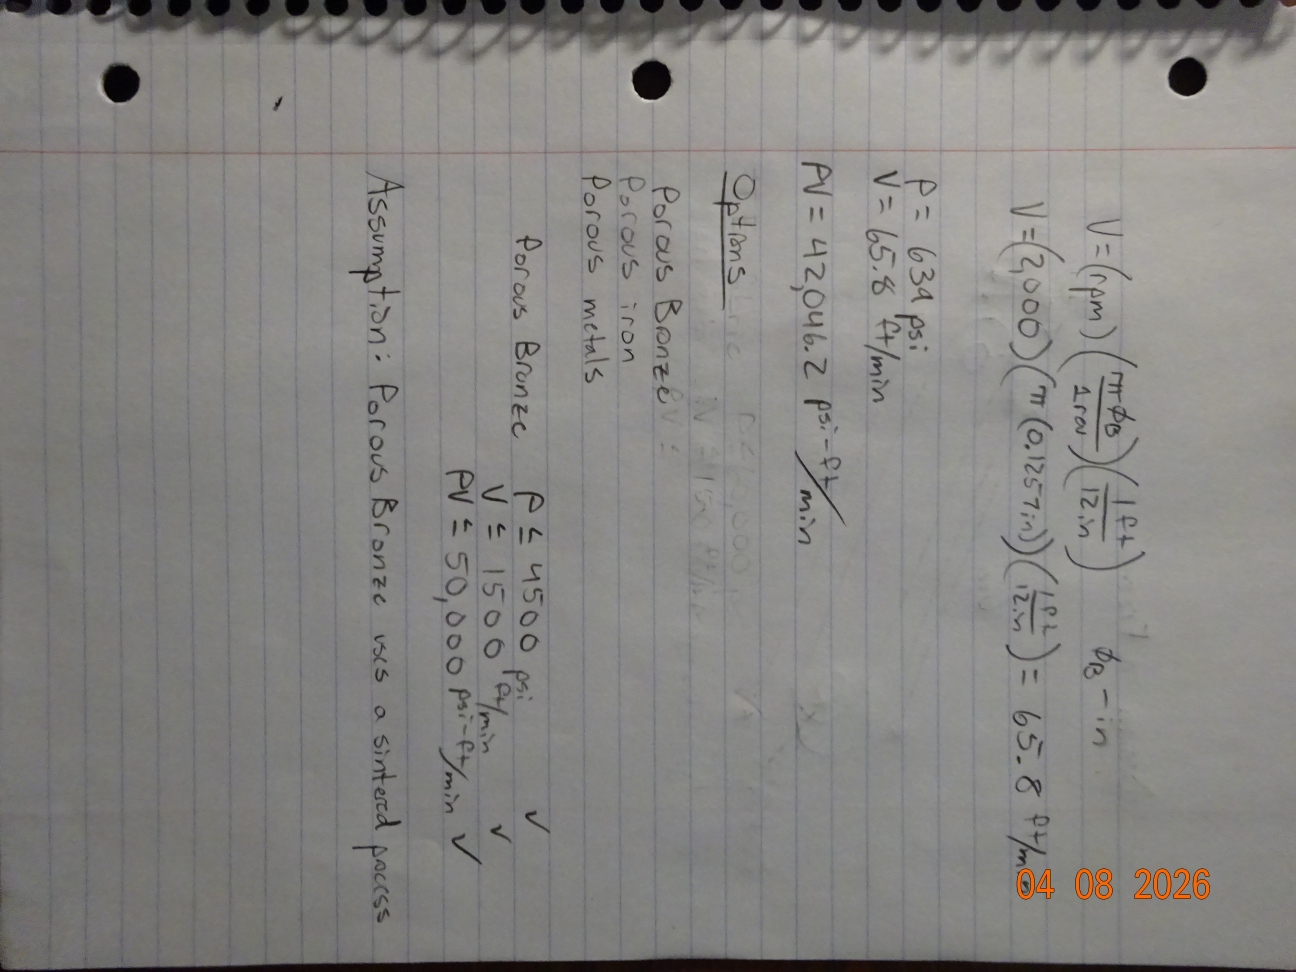 V = (rpm) (π ØB / 1 rev) (1 ft / 12 in)   ØB - in
V = (2,000) (π (0.1257 in)) (1 ft / 12 in) = 65.8 ft/min
P = 639 psi
V = 65.8 ft/min
PV = 42,046.2 psi-ft/min
Options
Porous Bronze
Porous iron
Porous metals
Porous Bronze   P ≤ 4500 psi ✓
V ≤ 1500 ft/min ✓
PV ≤ 50,000 psi-ft/min ✓
Assumption: Porous Bronze uses a sintered process
04 08 2026